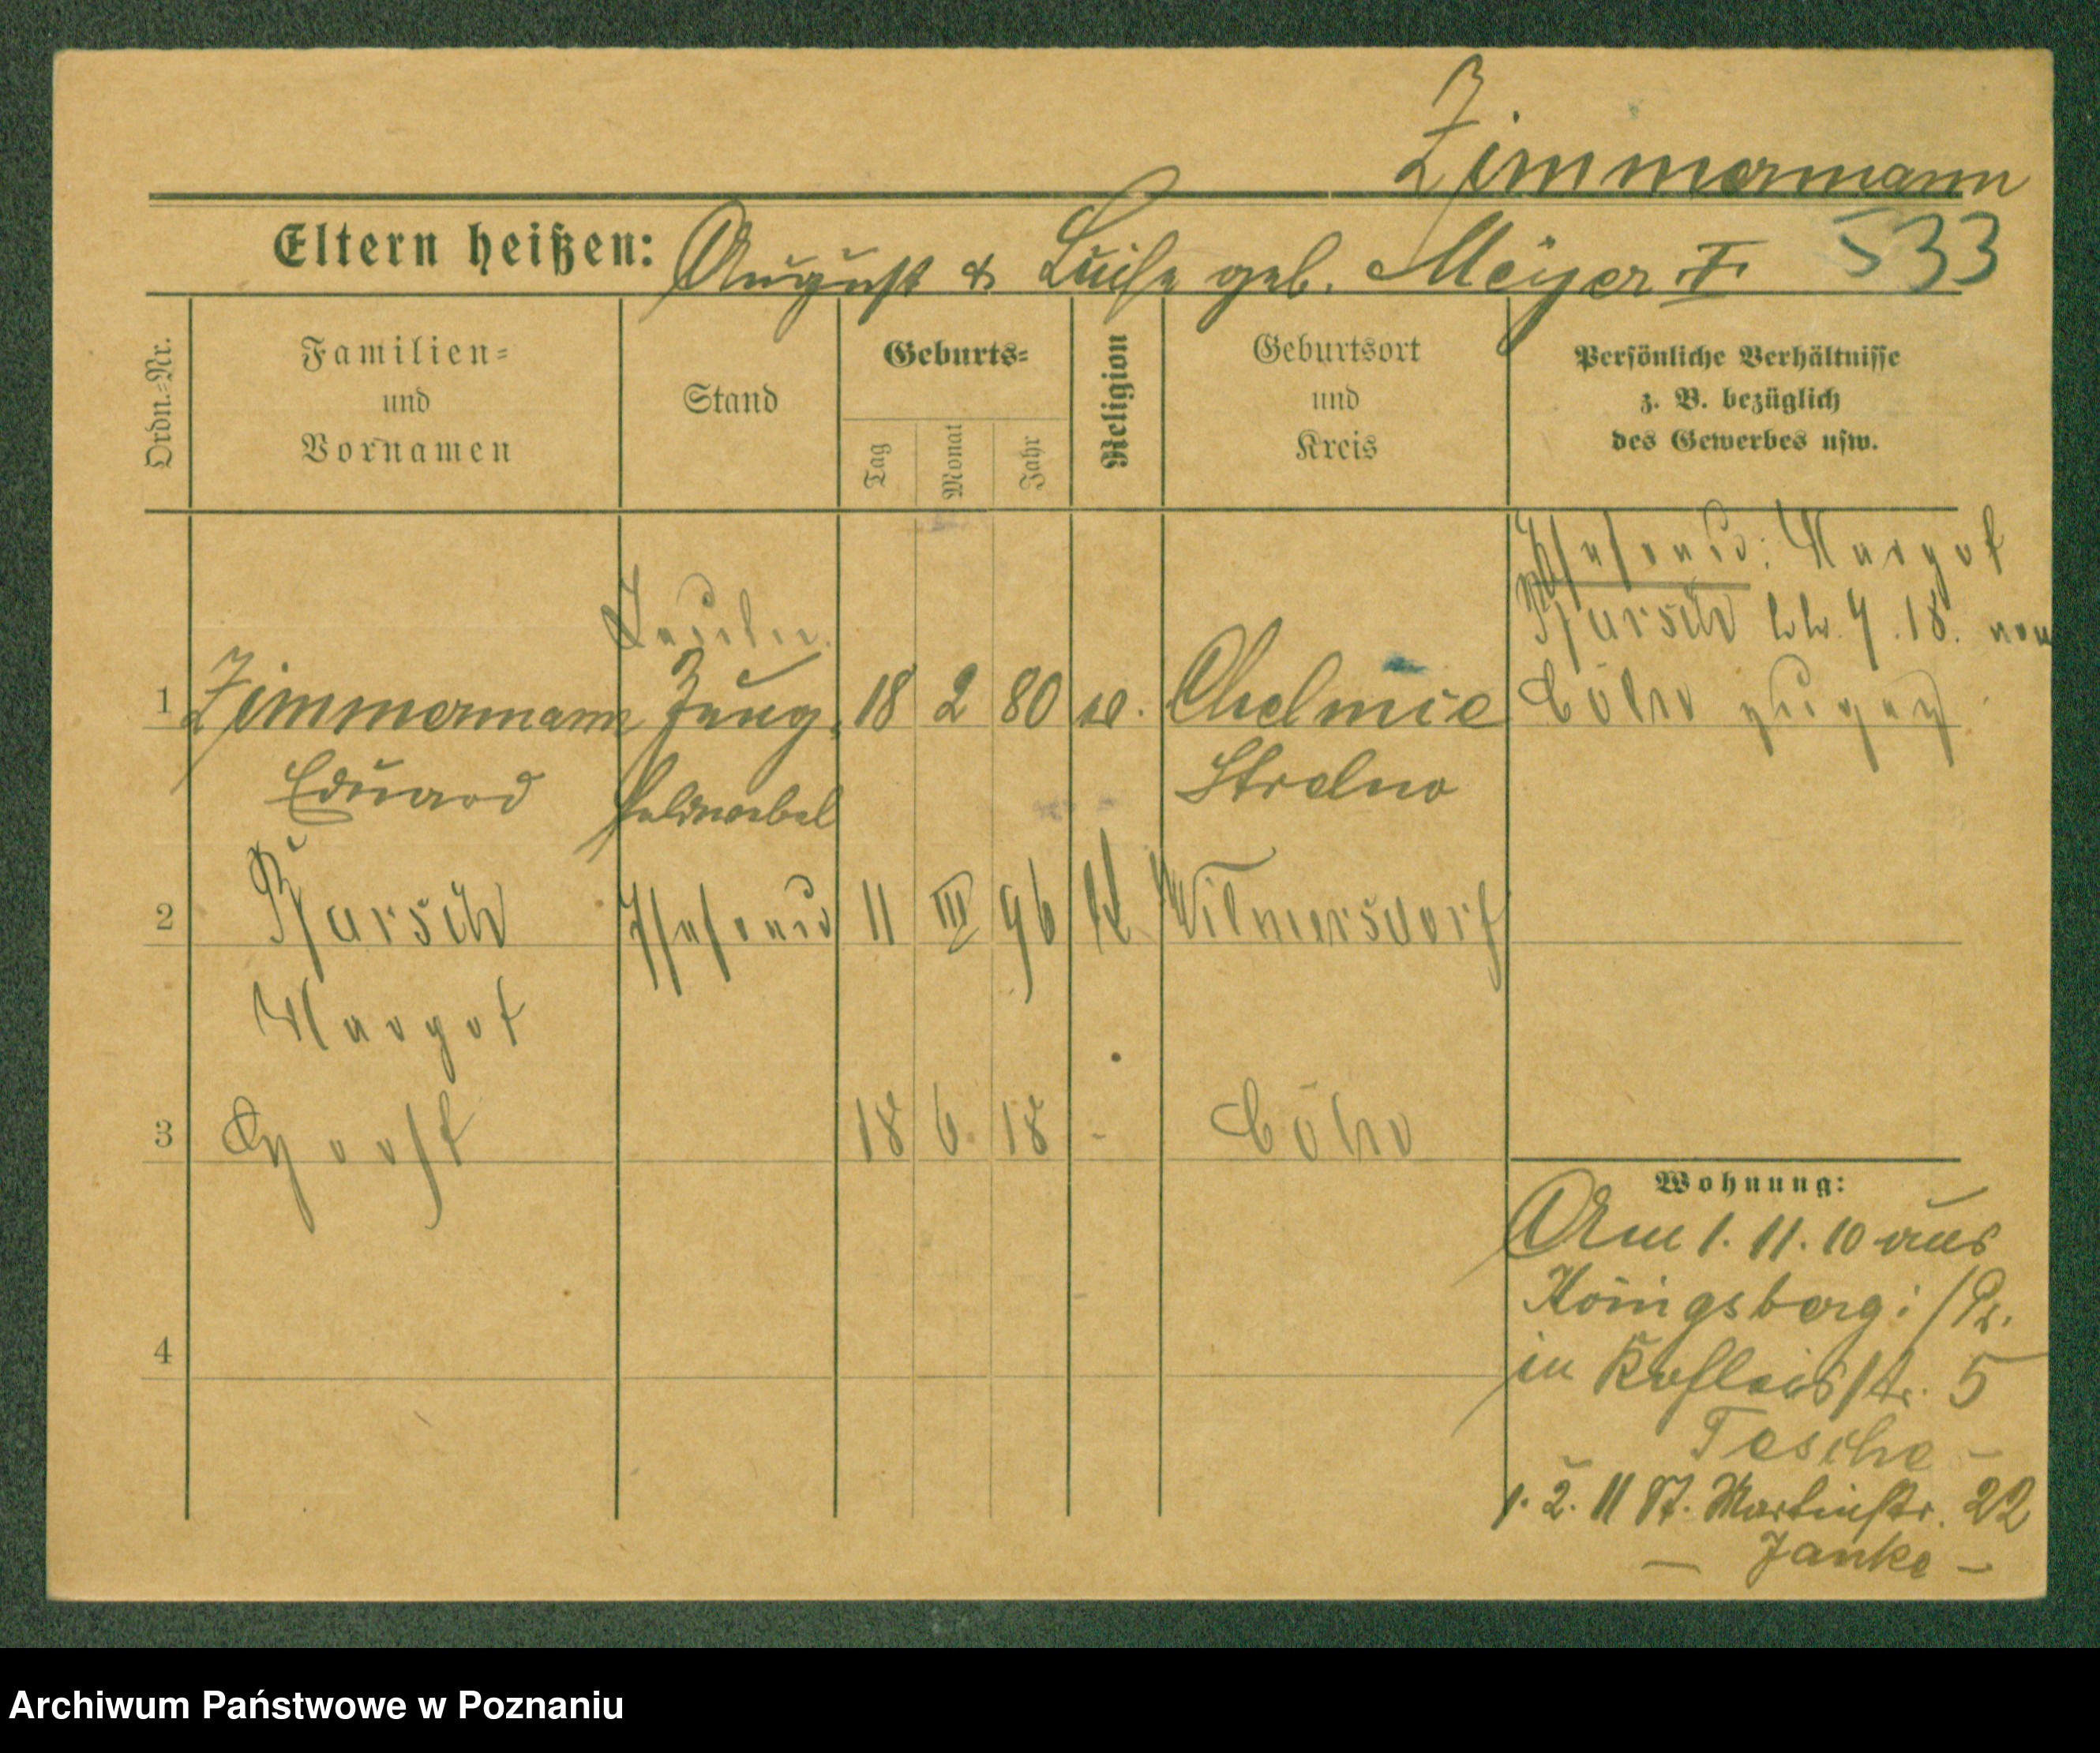 Zimmermann
Eltern heißen: August & Luise geb. Meyer I. 533
Ordn.=Nr.
Familien=
und
Vornamen
Stand
Geburts=
Tag
Monat
Jahr
Religion
Geburtsort
und
Kreis
Persönliche Verhältnisse
z. B. bezüglich
des Gewerbes usw.
Ehefrau: Margot
7.18. von
Cöln zugez
1 Zimmermann Zeug. 18 2 80 Chelmce
Eduard Feldwebel Strelno
2 Ehefrau 11 III 96 Wilmersdorf
Margot
3 18 6. 18 - Cöln
4
Wohnung:
Am 1. 11. 10 aus
Königsberg i/Pr.
in 5
Tesche -
1. 2. 11 St. Martinstr. 22
- Janke -
Archiwum Państwowe w Poznaniu